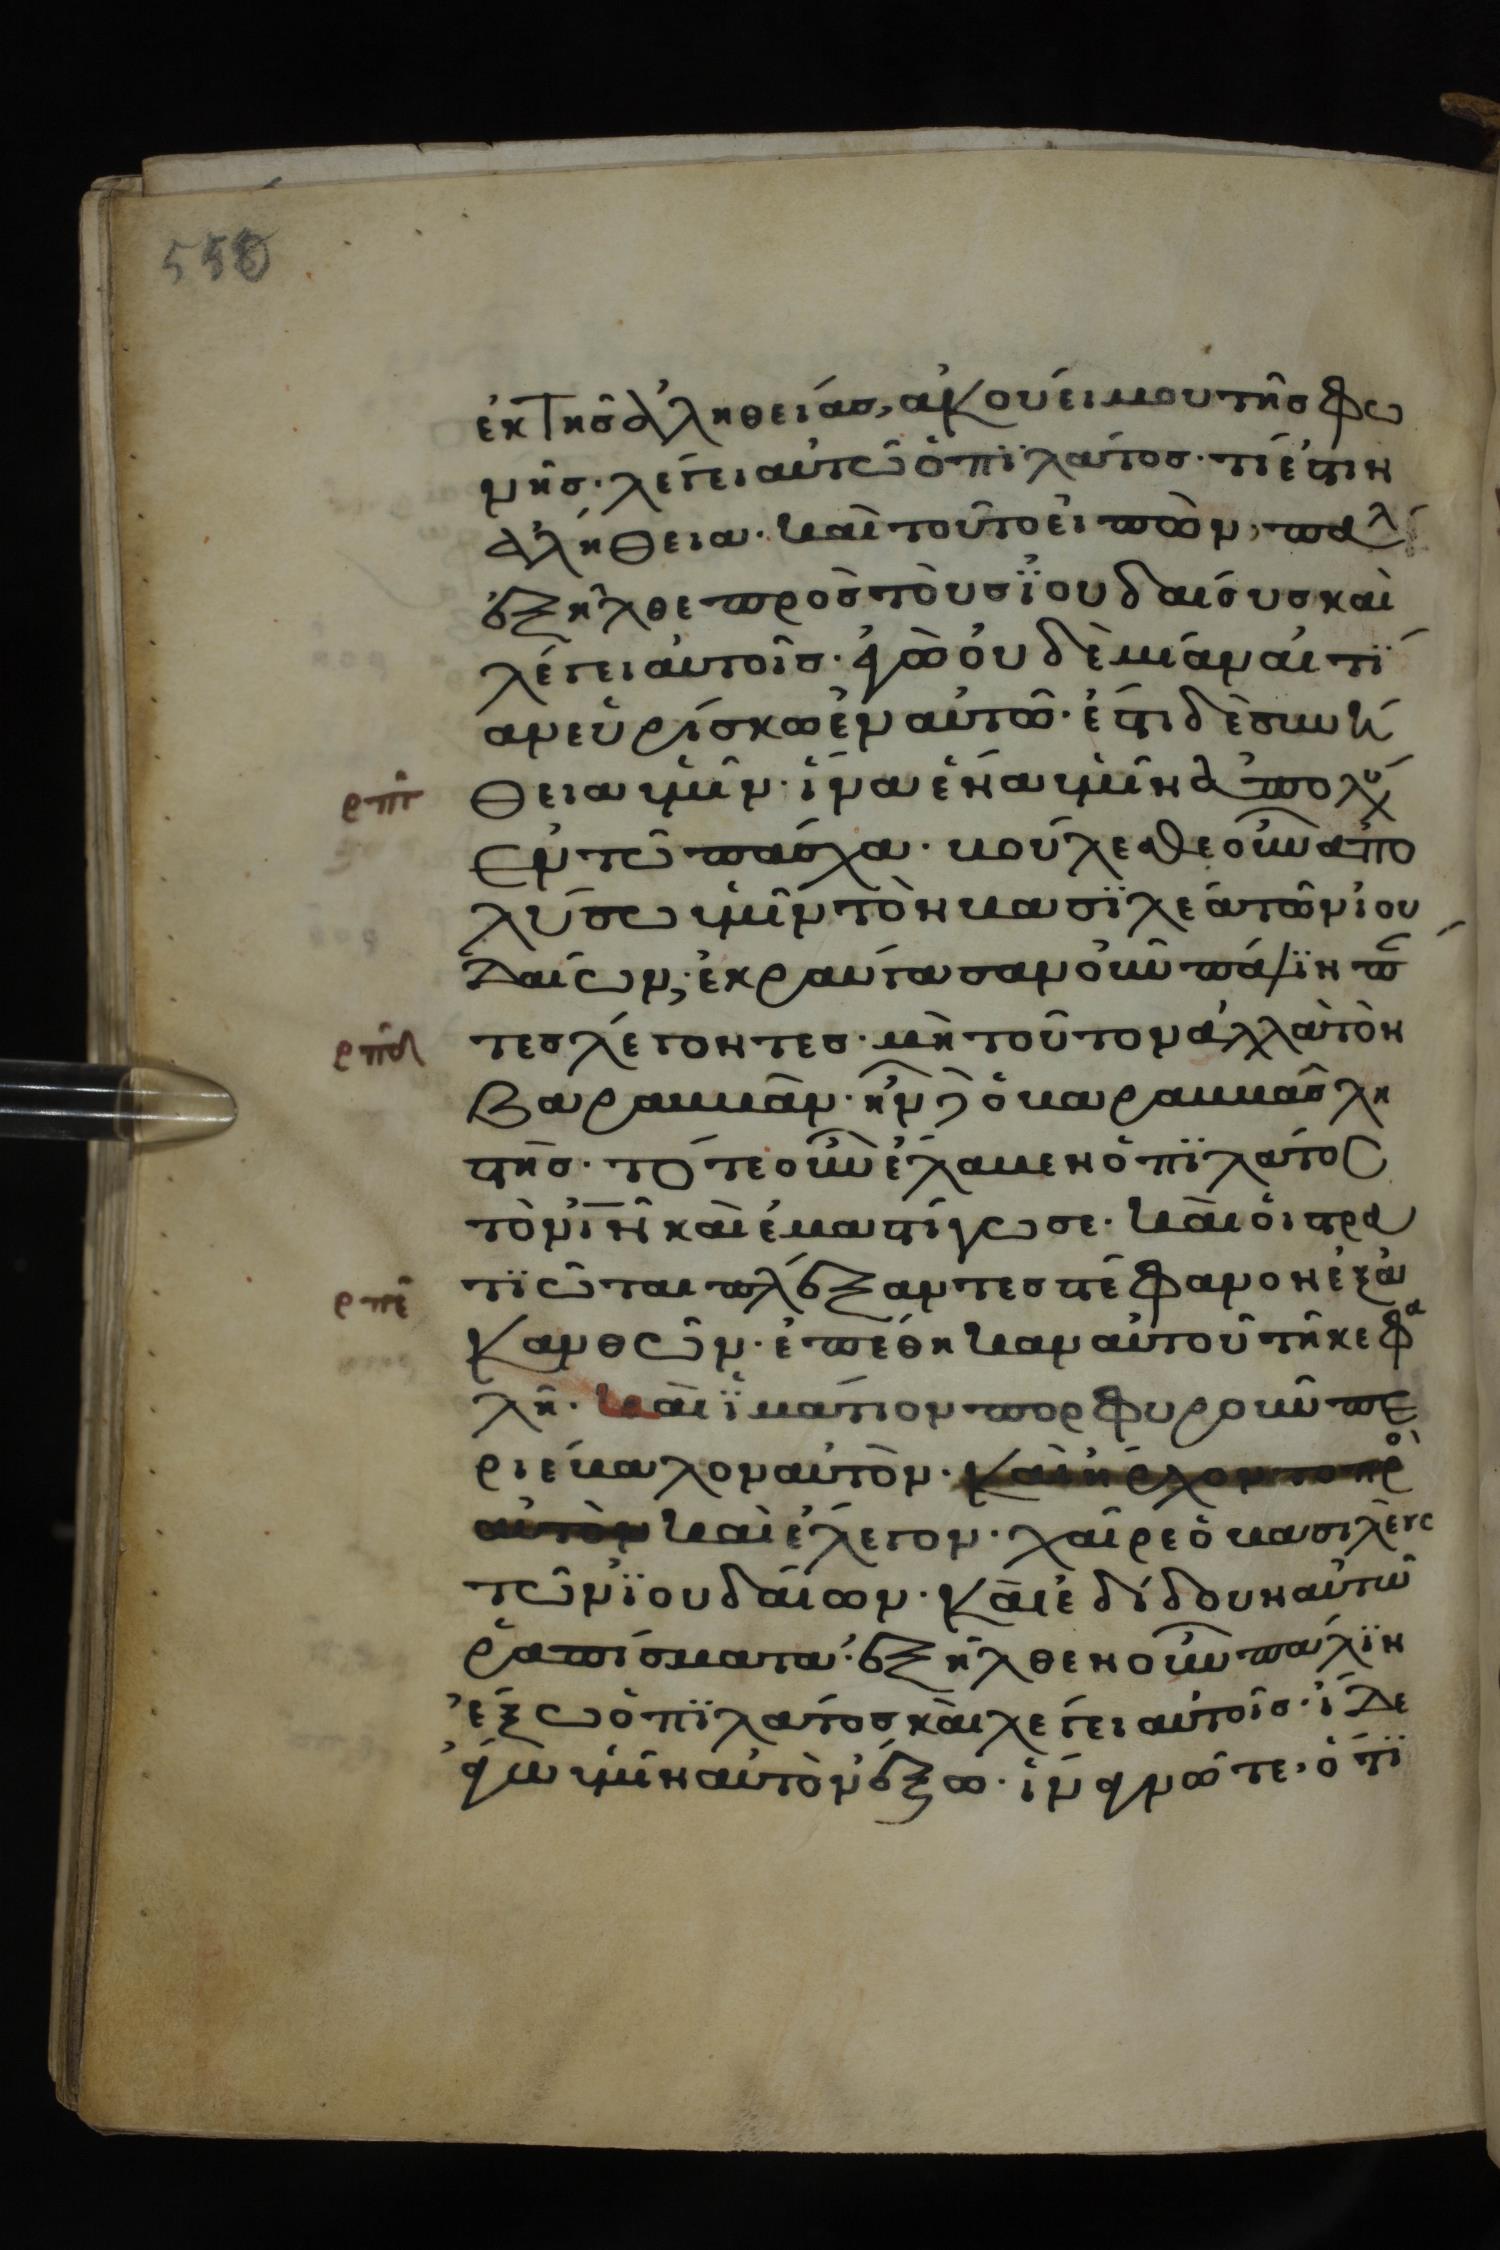 558
ἐκ τῆς ἀληθείας, ἀκούει μου τῆς φω
νῆς· λέγει αὐτῶ ὁ πϊλάτος· τί ἐστιν
ἀλήθεια· καὶ τοῦτο εἰπὼν, παλ
ἐξῆλθε πρὸς τοὺς ϊουδαίους καὶ
λέγει αὐτοῖς· ἐγὼ οὐδὲ μίαν αἰτϊ
αν εὑρίσκω ἐν αὐτῶ· ἔστι δὲ συνή
θεια ὑμῖν· ἵνα ἕνα ὑμῖν ἀπολύ
ρπγ
ἐν τῶ πάσχα· βούλεσθε οὖν ἀπο
λύσω ὑμῖν τὸν βασϊλέα τῶν ϊου
δαίων; ἐκραύγασαν οὖν πάλϊν π
τες λέγοντες· μὴ τοῦτον ἀλλὰ τὸν
ρπδ
βαραββᾶν· ἦν δὲ ὁ βαραββᾶς λη
στής· τότε οὖν ἔλαβεν ὁ πϊλάτος
τὸν ἰν καὶ ἐμαστίγωσε· καὶ οἱ στρα
τϊῶται πλέξαντες στέφανον ἐξ ἀ
ρπε
κανθῶν· ἐπέθηκαν αὐτοῦ τῆ κεφα
λῆ· καὶ ϊμάτιον πορφυροῦν πε
ριέβαλον αὐτὸν· καὶ ἤρχοντο πρὸ
αὐτὸν καὶ ἔλεγον· χαῖρε ὁ βασιλεὺς
τῶν ϊουδαίων· καὶ ἐδίδουν αὐτῶ
ῥαπίσματα· ἐξῆλθεν οὖν πάλϊν
ἔξω ὁ πϊλάτος καὶ λέγει αὐτοῖς· ἴδε
ἄγω ὑμῖν αὐτὸν ἔξω· ἵνα γνῶτε· ὅτϊ